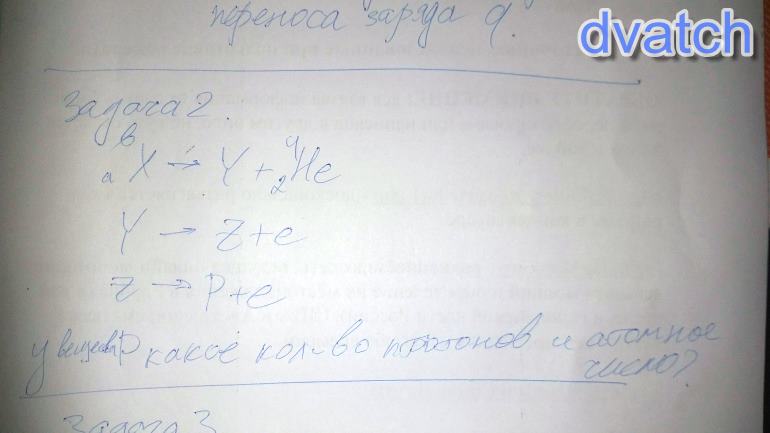 переноса заряда q.
dvatch
Задача 2.
ᵇₐX → Y + ⁴₂He
Y → Z + e
Z → P + e
у вещества P какое кол-во протонов и атомное
число?
Задача 3